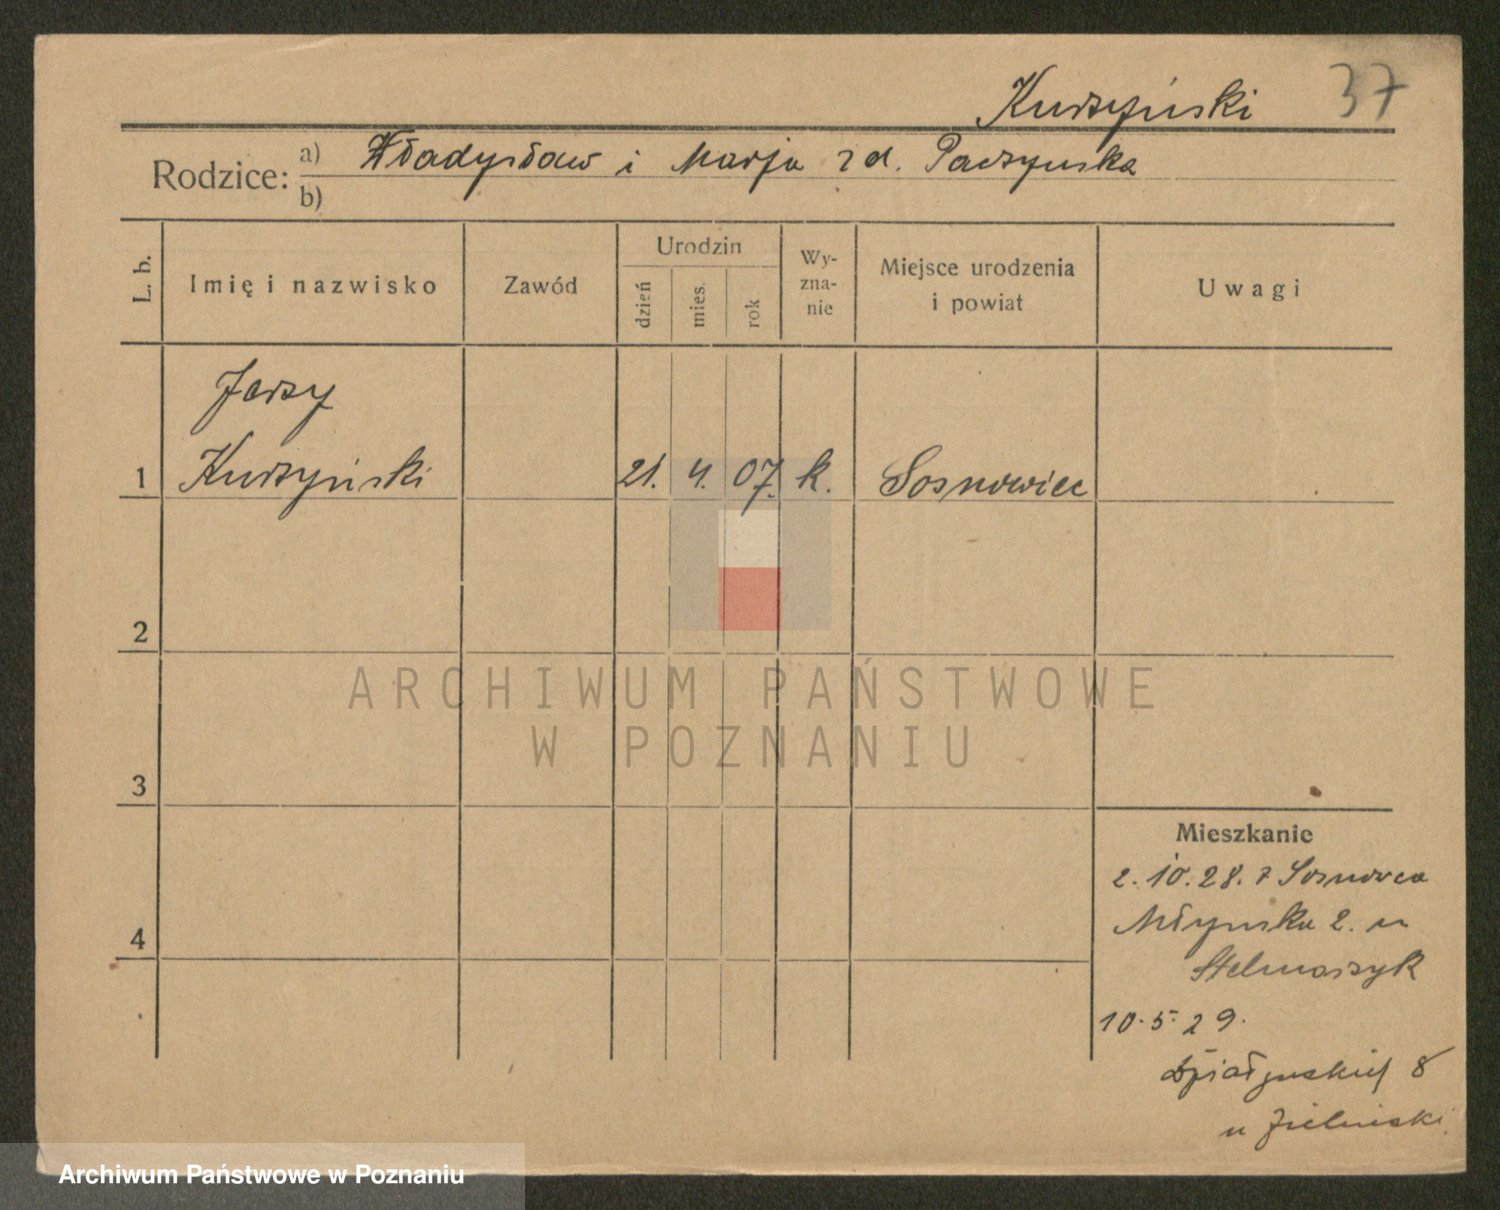 Kurzyński 37
Rodzice: a) Władysław i Marja z d. Paczynska
b)
L. b. Imię i nazwisko Zawód Urodzin dzień mies. rok Wy-zna-nie Miejsce urodzenia i powiat Uwagi
Jerzy
1 Kurzyński 21. 4. 07. k. Sosnowiec
2
ARCHIWUM PAŃSTWOWE
W POZNANIU
3
Mieszkanie
2. 10. 28. z Sosnowca
4 Młynska 2. u
Stelmaszyk
10. 5. 29.
Działynskich 8
u Zielinski
Archiwum Państwowe w Poznaniu